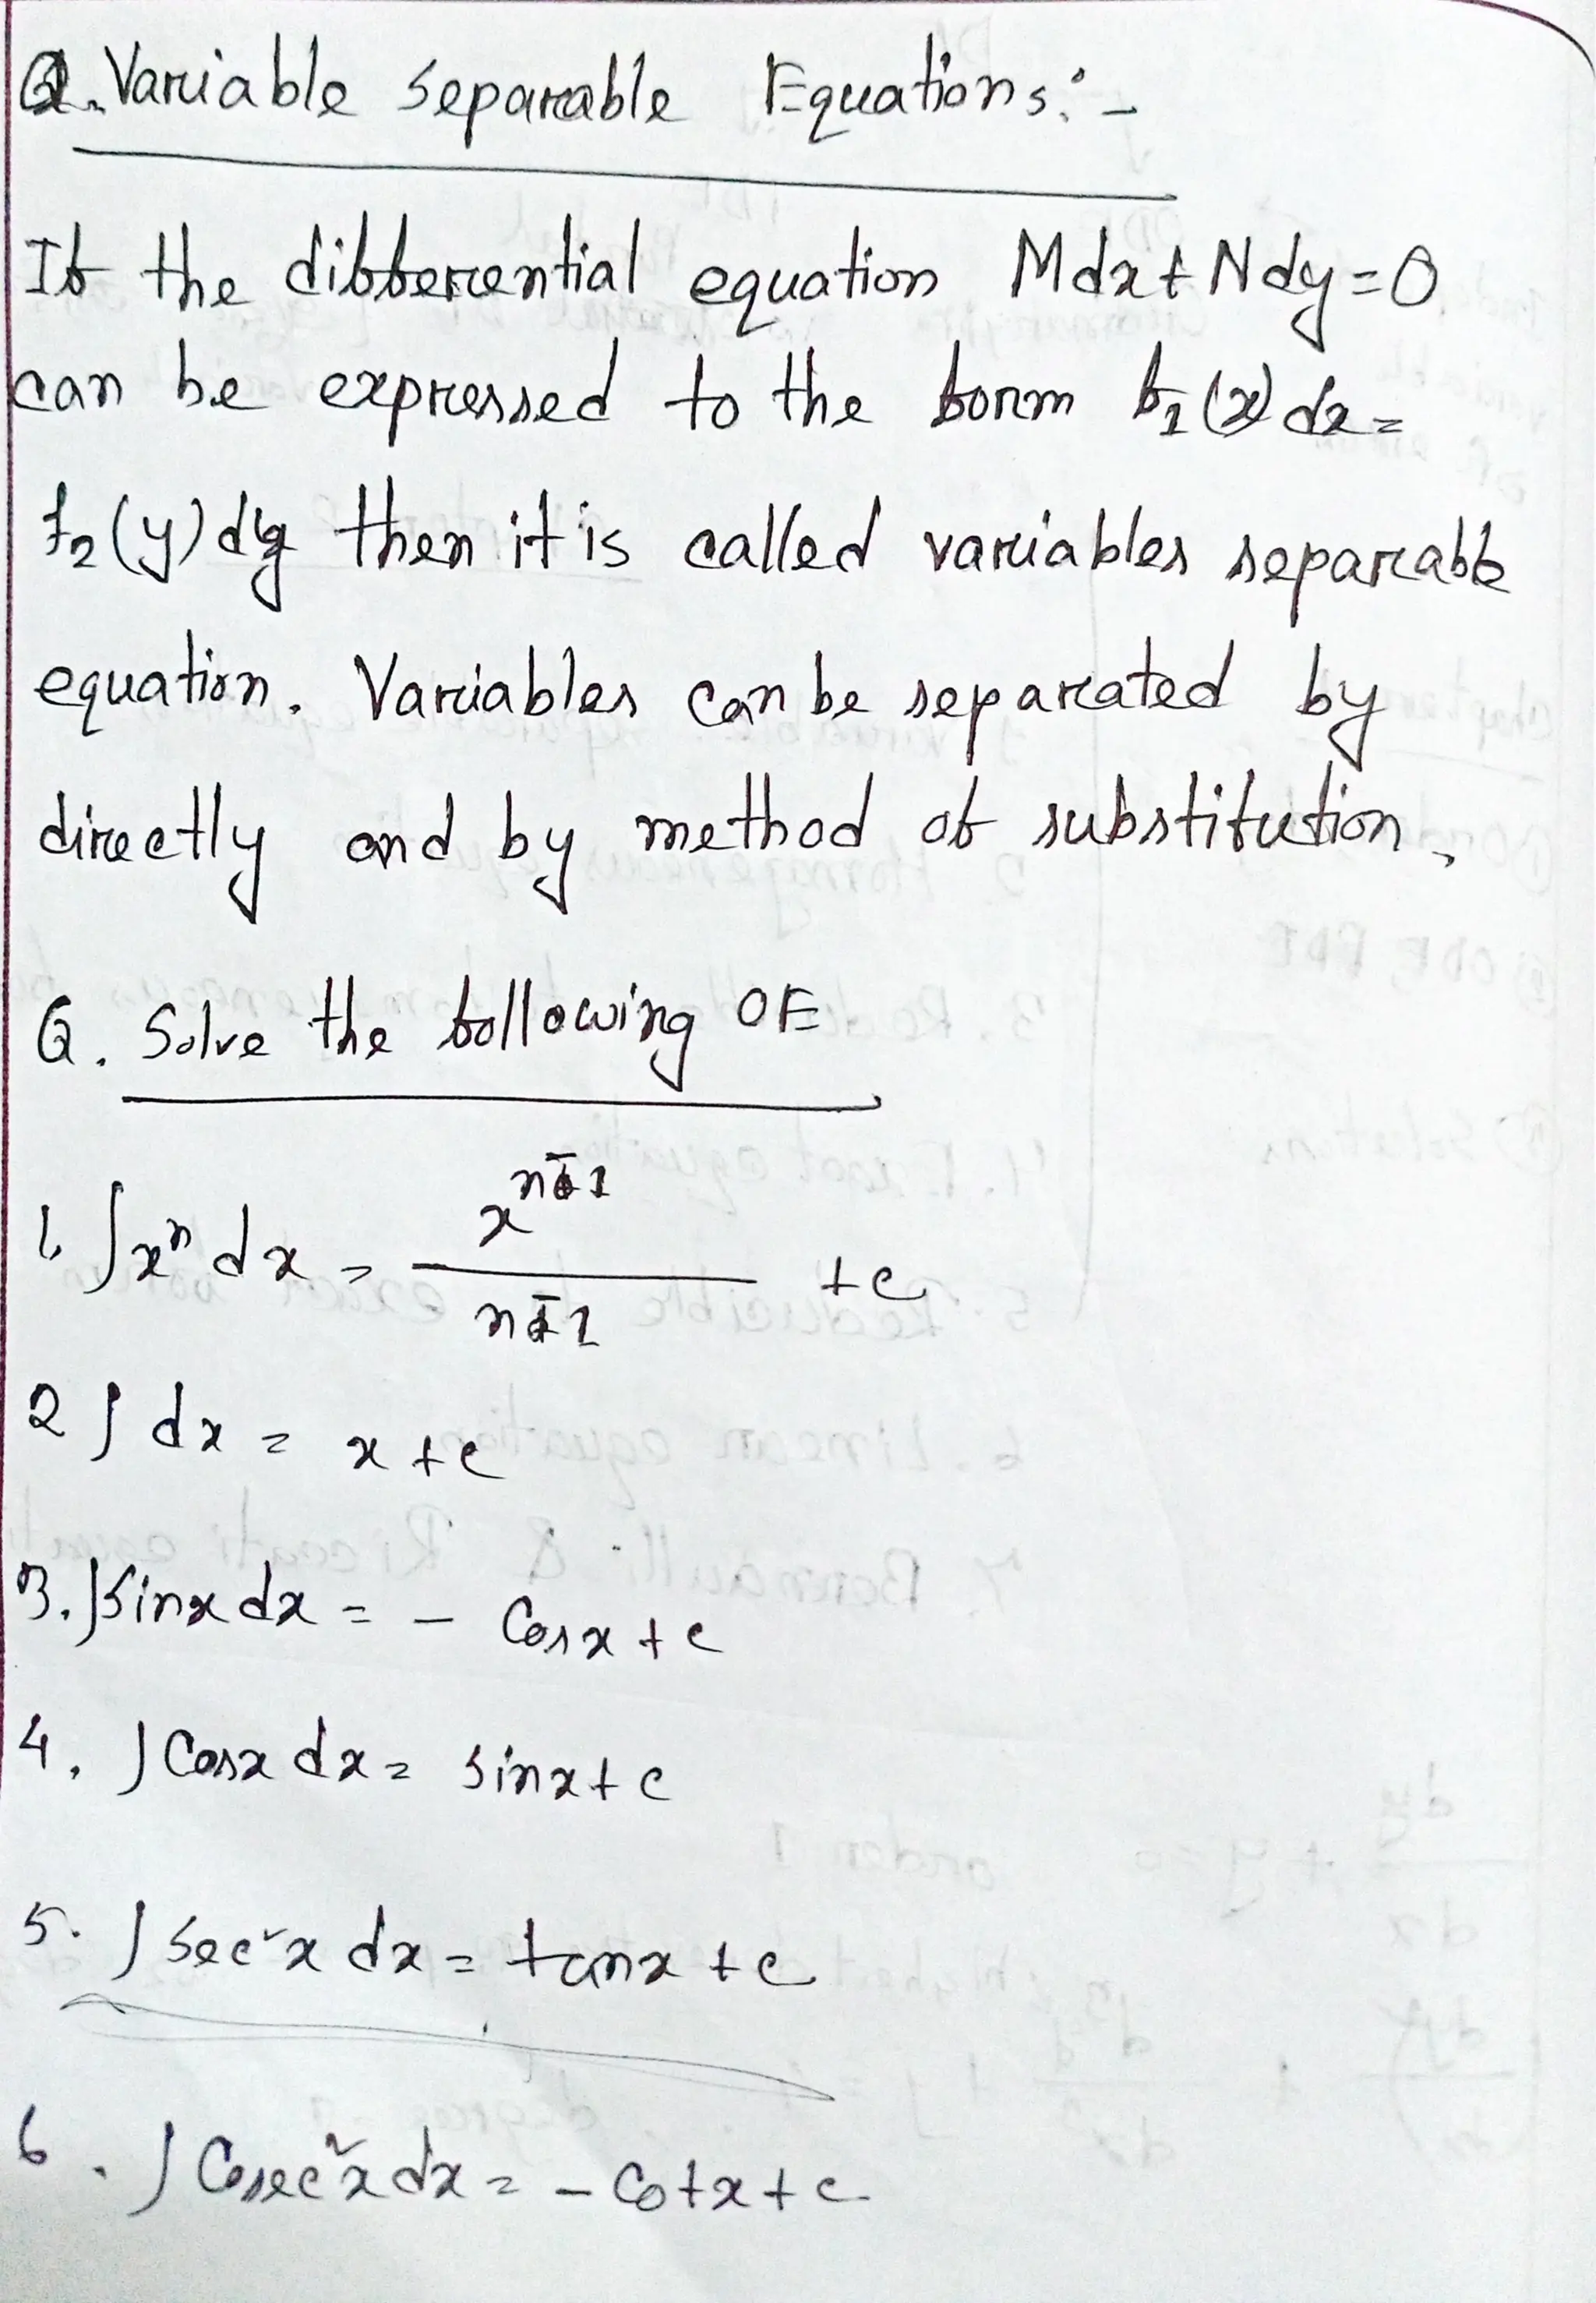 Q. Variable Separable Equations:-
If the differential equation Mdx + Ndy = 0
can be expressed to the form f₁(x) dx =
f₂(y) dy then it is called variables separable
equation. Variables can be separated by
directly and by method of substitution.
Q. Solve the following DE
1. ∫xⁿ dx = xⁿ⁺¹ / n+1 + c
2 ∫ dx = x + c
3. ∫Sinx dx = - Cosx + c
4. ∫ Cosx dx = Sinx + c
5. ∫ Sec²x dx = tanx + c
6. ∫ Cosec²x dx = - Cotx + c